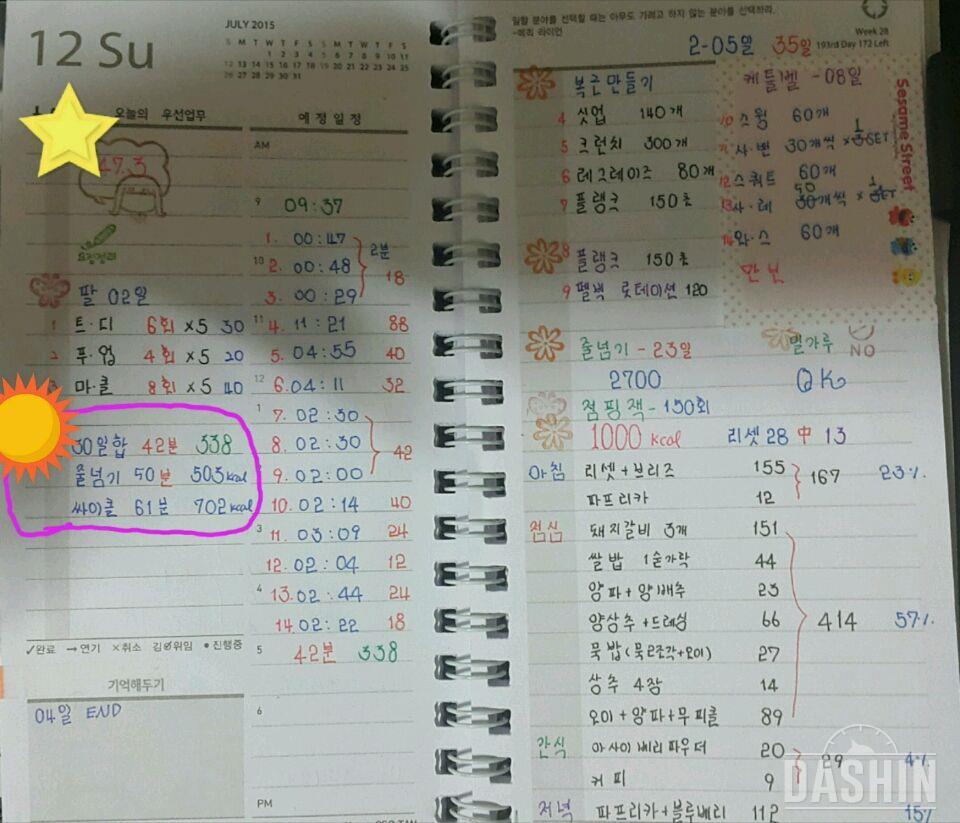 12 Su
JULY 2015
S M T W T F S S M T W T F S
1 2 3 4 5 6 7 8 9 10 11
12 13 14 15 16 17 18 19 20 21 22 23 24 25
26 27 28 29 30 31
오늘의 우선업무
47.3
요점정리
팔 02일
1 트·디 6회 ×5 30
2 푸·업 4회 ×5 20
마·클 8회 ×5 40
30일합 42분 338
줄넘기 50분 503kcal
싸이클 61분 702kcal
✓완료 →연기 ×취소 김∅위임 •진행중
기억해두기
04일 END
예정일정
AM
9 09:37
1. 00:47
10 2. 00:48 2분 18
3. 00:29
11 4. 11:21 88
5. 04:55 40
12 6. 04:11 32
1 7. 02:30
8. 02:30 42
9. 02:00
10. 02:14 40
3 11. 03:09 24
12. 02:04 12
4 13. 02:44 24
14. 02:22 18
5 42분 338
6
PM
일할 분야를 선택할 때는 아무도 가려고 하지 않는 분야를 선택하라.
-메리 라이언
Week 28
193rd Day 172 Left
2-05일 35일
복근만들기
4 싯업 140개
5 크런치 300개
6 레그레이즈 80개
7 플랭크 150초
8 플랭크 150초
9 펠빅 로테이션 120
케틀벨 -08일
10 스윙 60개
사·벤 30개씩 × 1 SET
12 스쿼트 60개
13 사·레 50 30개씩 × 1 SET
14 와·스 60개
만보
Sesame Street
줄넘기 -23일
2700
밀가루
NO
OK
점핑잭 -150회
1000 kcal 리셋 28 中 13
아침 리셋+브리즈 155
파프리카 12
167 23%
점심 돼지갈비 3개 151
쌀밥 1숟가락 44
양파+양배추 23
양상추+드레싱 66
묵밥(묵2조각+오이) 27
상추 4장 14
오이+양파+무피클 89
414 57%
간식 아사이베리파우더 20
커피 9
29 4%
저녁 파프리카+블루베리 112 15%
DASHIN